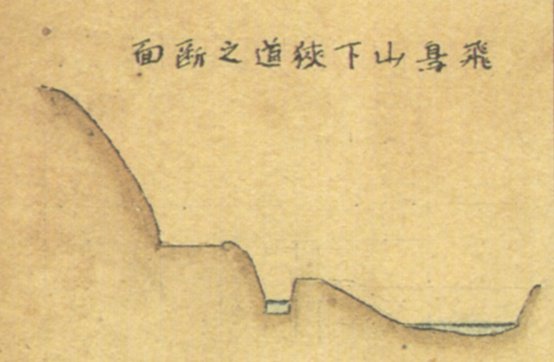 飛鳥山下狹道之断面